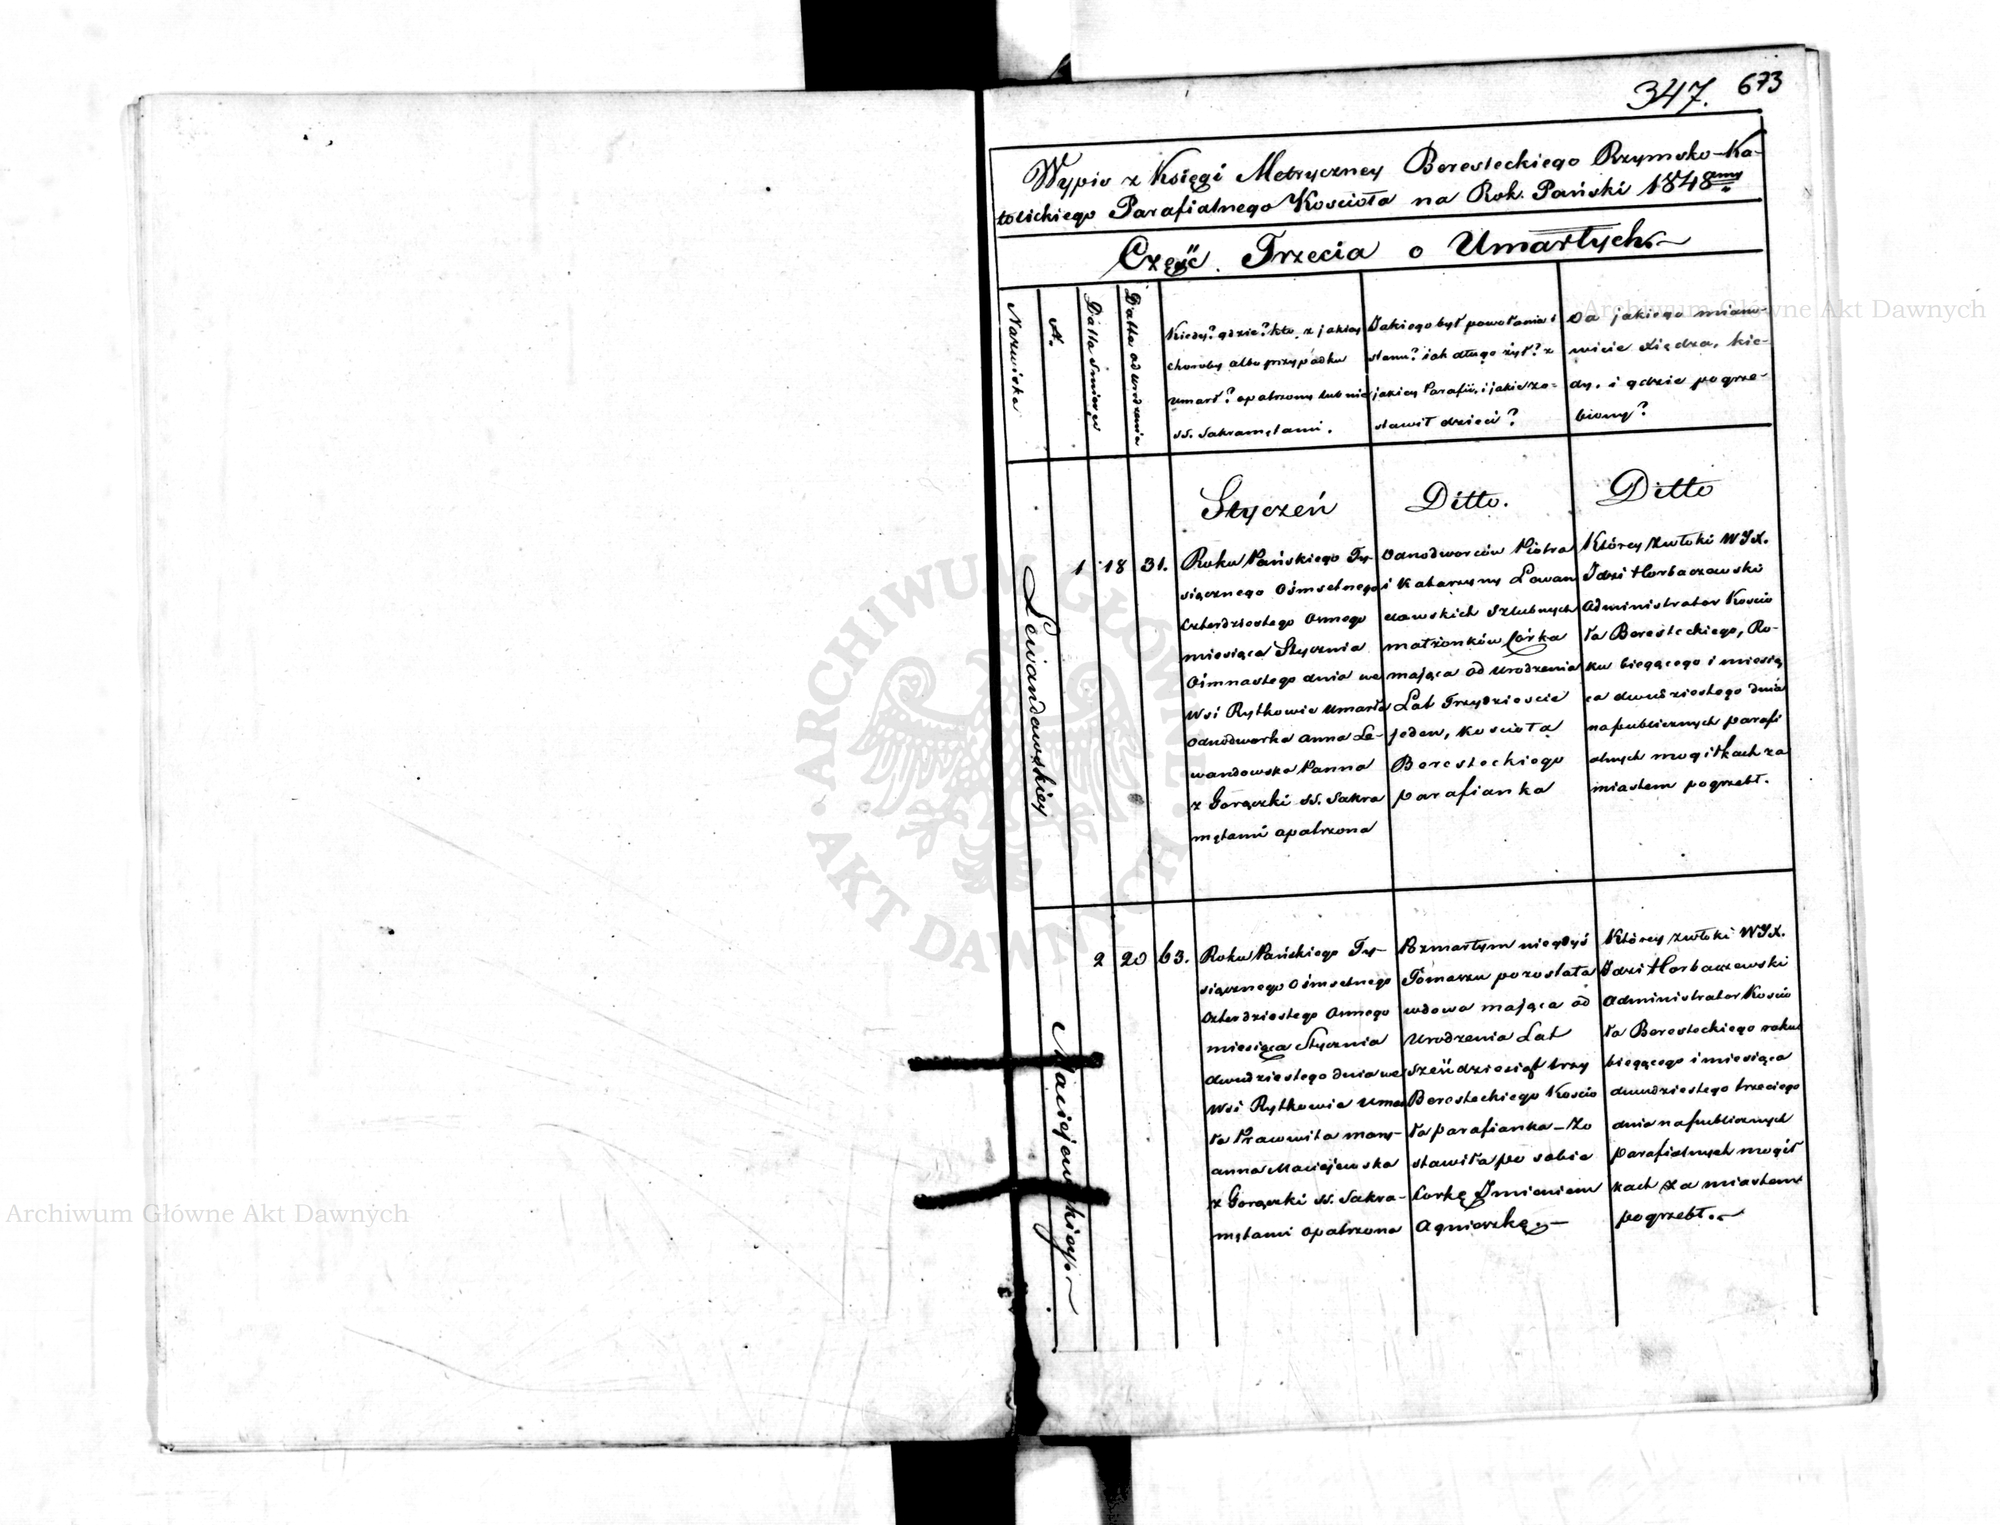 347. 673
Wypis z Księgi Metryczney Beresteckiego Rzymsko-Ka-
tolickiego Parafialnego Kościoła na Rok Pański 1848my
Część Trzecia o Umarłych
Nazwiska
N.
Datta Śmierci
Datta od urodzenia
Kiedy? gdzie? kto, z jakiey
choroby albo przypadku
umarł? opatrzony lub nie
SS. Sakramętami.
Jakiego był powołania i
stanu? jak długo żył? z
jakiey Parafii, i jakie zo-
stawił dzieci?
Od jakiego miano-
wicie xiędza, kie-
dy, i gdzie pogrze-
biony?
Lewandowskiey
1 18 31.
Styczeń
Roku Pańskiego Ty-
siącznego Ośmsetnego
Czterdziestego Osmego
miesiąca Stycznia
Ośmnastego dnia we
wsi Rytkowie umarła
Odnodworka Anna Le-
wandowska Panna
z Gorączki SS. Sakra
mętami opatrzona
Ditto.
Odnodworców Piotra
i Katarzyny Lewan
dowskich Szlubnych
małżonków Córka
mająca od urodzenia
Lat Trzydzieście
jeden, Kościoła
Beresteckiego
parafianka
Ditto
Którey zwłoki WJX.
Idzi Horbaczewski
Administrator Kościo
ła Beresteckiego, Ro-
ku biegącego i miesią
ca dwudziestego dnia
na publicznych parafi
alnych mogiłkach za
miastem pogrzebł.
Maciejewskiey
2 20 63.
Roku Pańskiego Ty-
siącznego Ośmsetnego
Czterdziestego Osmego
miesiąca Stycznia
dwudziestego dnia we
wsi Rytkowie umar
ła Pracowita mary-
anna Maciejewska
z Gorączki SS. Sakra-
mętami opatrzona
Po zmarłym niegdyś
Tomaszu pozostała
wdowa mająca od
Urodzenia Lat
Sześdziesiąt trzy
Beresteckiego Kościo
ła parafianka - Zo
stawiła po sobie
Corkę Imieniem
Agnieszkę. -
Którey zwłoki WJX.
Idzi Horbaczewski
Administrator Kościo
ła Beresteckiego roku
biegącego i miesiąca
dwudziestego trzeciego
dnia na publicznych
parafialnych mogił
kach za miastem
pogrzebł. -
ARCHIWUM GŁÓWNE
AKT DAWNYCH
Archiwum Główne Akt Dawnych
Archiwum Główne Akt Dawnych